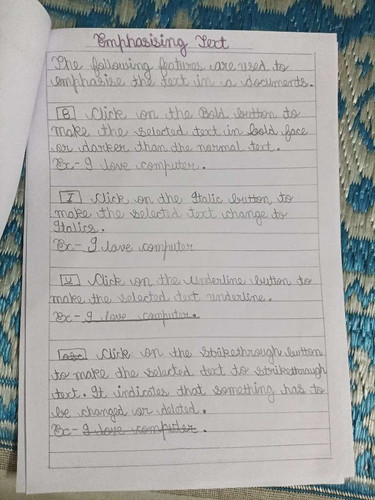 Emphasising Text
The following features are used to
emphasise the text in a documents.
B Click on the Bold button to
make the selected text in bold face
or darker than the normal text.
Ex- I love computer.
I Click on the Italic button to
make the selected text change to
Italics.
Ex- I love computer
U Click on the Underline button to
make the selected text underline.
Ex- I love computer.
abc Click on the strikethrough button
to make the selected text to strikethrough
text. It indicates that something has to
be changed or deleted.
Ex- I love computer.